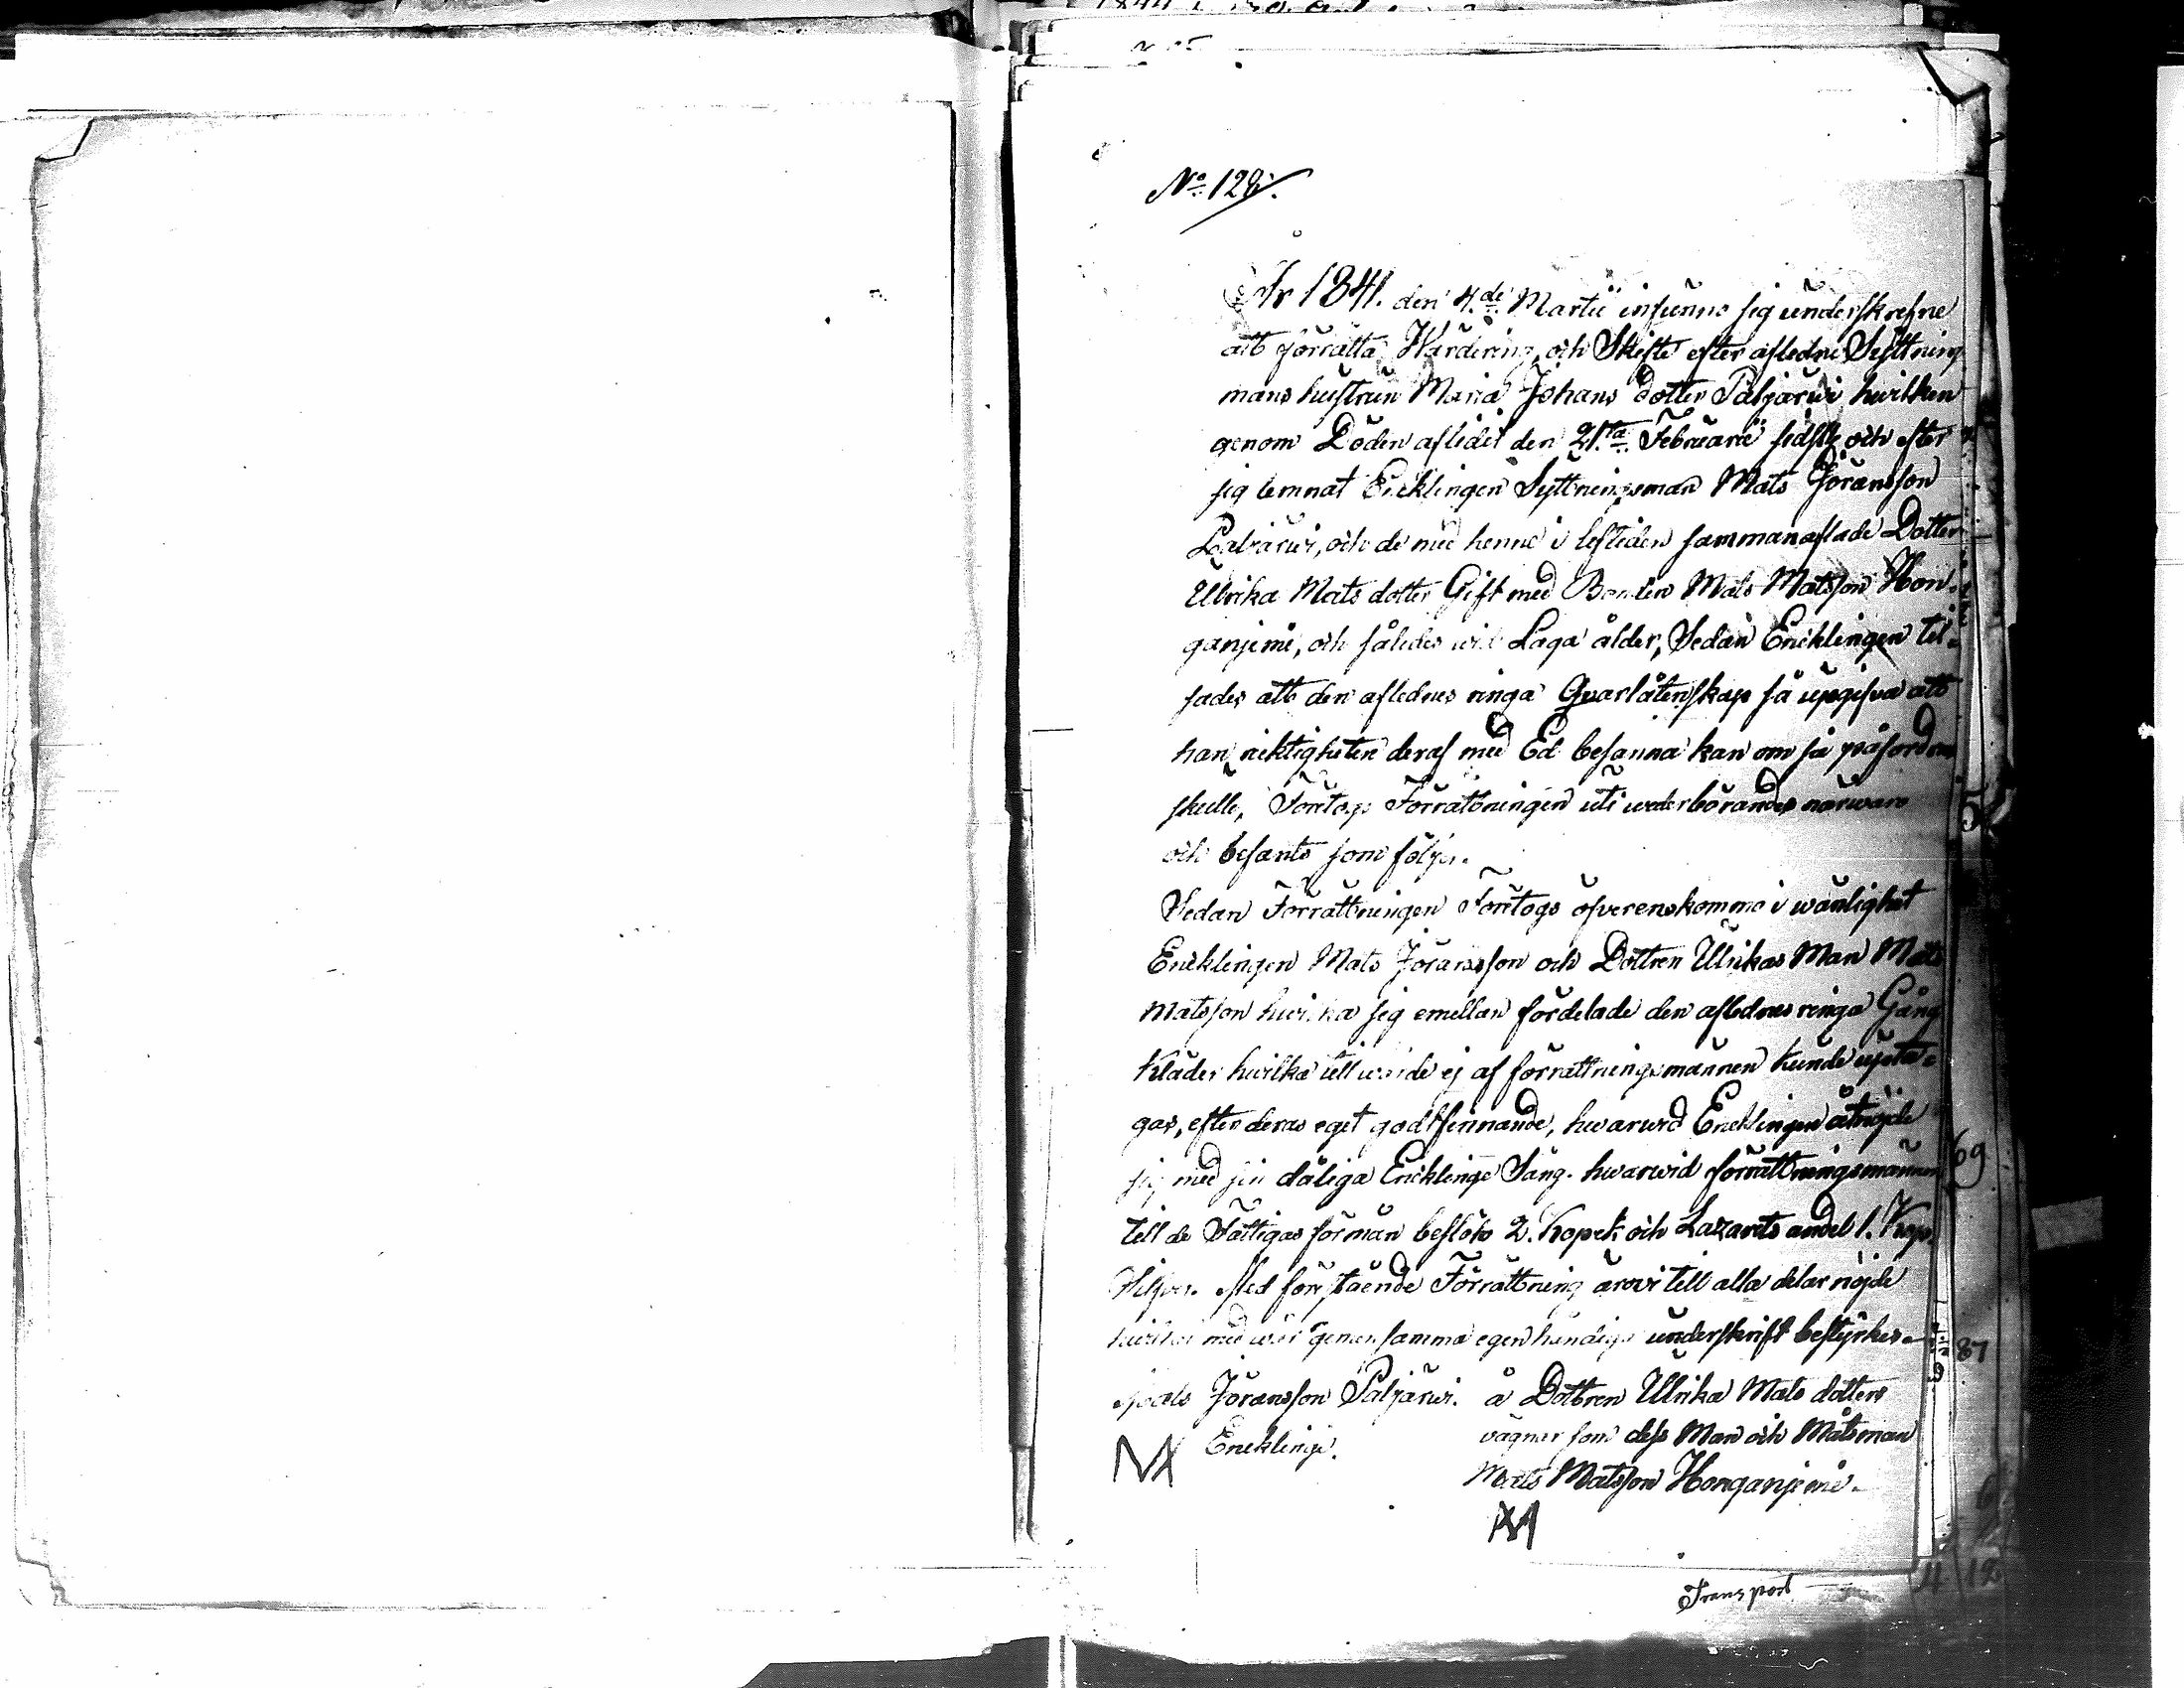 No 128.
År 1841. den 4.de Martii infunno sig underskrefne
att förrätta Wärdering, och Skifte efter aflednе Syttning
mans hustrun Maria Johans dotter Paljärwi hwilken
genom Döden aflidit den 21.ta Februarii sidstl. och efter
sig lemnat Encklingen Syttningsman Mats Jöransson
Paljärwi, och de med henne i lifstiden sammanaflade Dotter
Ulrika Mats dotter Gift med Bonden Mats Matsson Hon-
ganjemi, och således wid Laga ålder, Sedan Encklingen til-
sades att den aflednes ringa Qvarlåtenskap så upgifva att
han riktigheten deraf med Ed besanna kan om så påfordras
skulle, Företogs Förrättningen uti wederbörandes närwaro
och befants som följer.
Sedan Förrättningen Företogs öfverenskommo i wänlighet
Encklingen Mats Jöransson och Dottren Ulrikas Man Mats
Matsson hwilka sig emellan fördelade den aflednes ringa Gång
Kläder hwilka till wärde ej af förrättningsmännen kunde upta-
gas, efter deras eget godtfinnande, hwarwid Encklingen åtnöjde
sig med sin dåliga Encklinge Säng. hwarwid förrättningsmännen
till de Fattigas förmån beslöto 2. Kopek och Lazarets andel 1. Kop.
Silfver. Med förestående Förrättning äro vi till alla delar nöjde
hwilket med wår gemensamma egenhändiga underskrift bestyrkes.
Mats Jöransson Paljärwi. å Dottren Ulrika Mats dotters
Encklinge. vägnar som dess Man och Målsman
Mats Matsson Honganjemi.
Transport